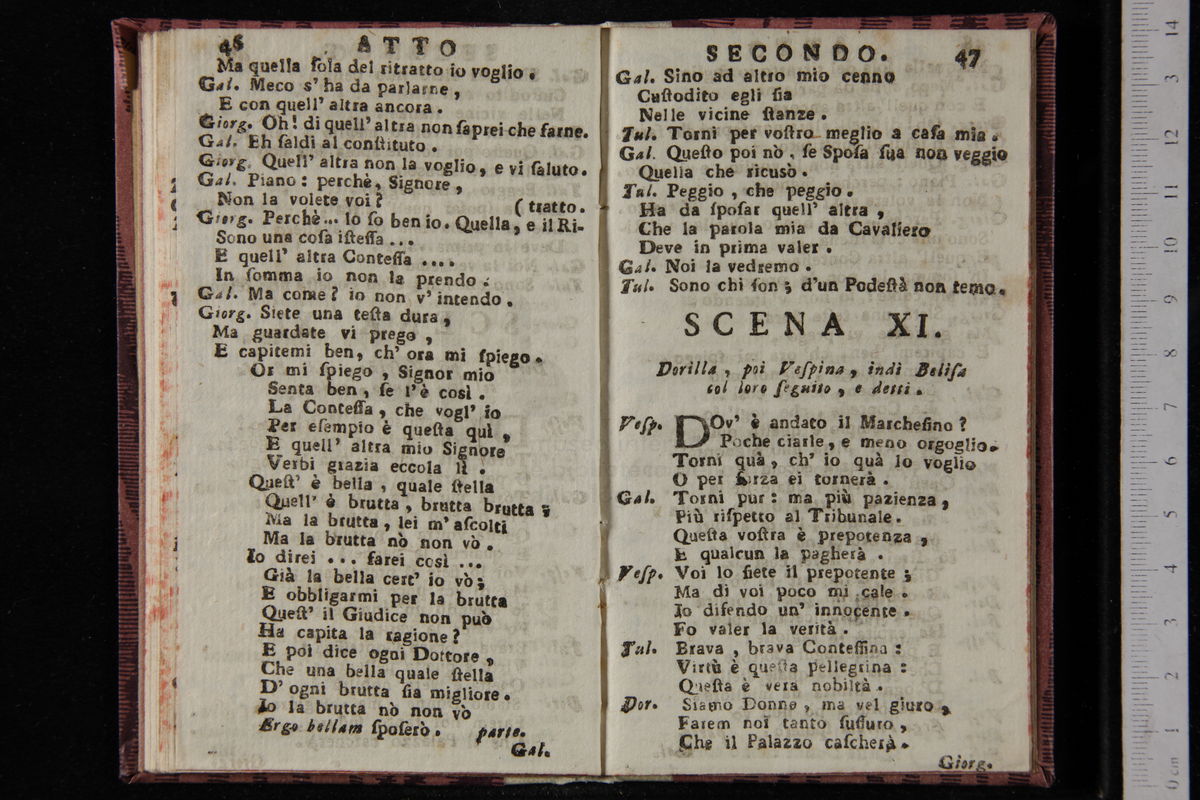 46 ATTO
Ma quella ſola del ritratto io voglio.
Gal. Meco s' ha da parlarne,
E con quell' altra ancora.
Giorg. Oh! di quell' altra non ſaprei che farne.
Gal. Eh ſaldi al conſtituto.
Giorg. Quell' altra non la voglio, e vi ſaluto.
Gal. Piano: perchè, Signore,
Non la volete voi? (tratto.
Giorg. Perchè... Io ſo ben io. Quella, e il Ri-
Sono una coſa iſteſſa...
E quell' altra Conteſſa ....
In ſomma io non la prendo.
Gal. Ma come? io non v' intendo.
Giorg. Siete una teſta dura,
Ma guardate vi prego,
E capitemi ben, ch' ora mi ſpiego.
Or mi ſpiego, Signor mio
Senta ben, ſe l'è così.
La Conteſſa, che vogl' io
Per eſempio è queſta quì,
E quell' altra mio Signore
Verbi grazia eccola lì.
Queſt' è bella, quale ſtella
Quell' è brutta, brutta brutta;
Ma la brutta, lei m' aſcolti
Ma la brutta nò non vò.
Io direi ... farei così ...
Già la bella cert' io vò;
E obbligarmi per la brutta
Queſt' il Giudice non può
Ha capita la ragione?
E poi dice ogni Dottore,
Che una bella quale ſtella
D' ogni brutta ſia migliore.
Io la brutta nò non vò
Ergo bellam ſpoſerò. parte.
Gal.
SECONDO. 47
Gal. Sino ad altro mio cenno
Cuſtodito egli ſia
Nelle vicine ſtanze.
Tul. Torni per voſtro meglio a caſa mia.
Gal. Queſto poi nò, ſe Spoſa ſua non veggio
Quella che ricusò.
Tul. Peggio, che peggio.
Ha da ſpoſar quell' altra,
Che la parola mia da Cavaliero
Deve in prima valer.
Gal. Noi la vedremo.
Tul. Sono chi ſon; d'un Podeſtà non temo.
SCENA XI.
Dorilla, poi Veſpina, indi Beliſa
col loro ſeguito, e detti.
Veſp. DOv' è andato il Marcheſino?
Poche ciarle, e meno orgoglio.
Torni quà, ch' io quà lo voglio
O per forza ei tornerà.
Gal. Torni pur: ma più pazienza,
Più riſpetto al Tribunale.
Queſta voſtra è prepotenza,
E qualcun la pagherà.
Veſp. Voi lo ſiete il prepotente;
Ma di voi poco mi cale.
Io difendo un' innocente.
Fo valer la verità.
Tul. Brava, brava Conteſſina:
Virtù è queſta pellegrina:
Queſta è vera nobiltà.
Dor. Siamo Donne, ma vel giuro,
Farem noi tanto ſuſſuro,
Che il Palazzo caſcherà.
Giorg.
14
13
12
11
10
9
8
7
6
5
4
3
2
1
0 cm